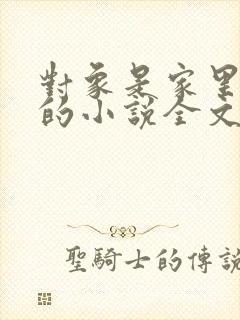 對象是家里
的小說全文
聖騎士的傳說